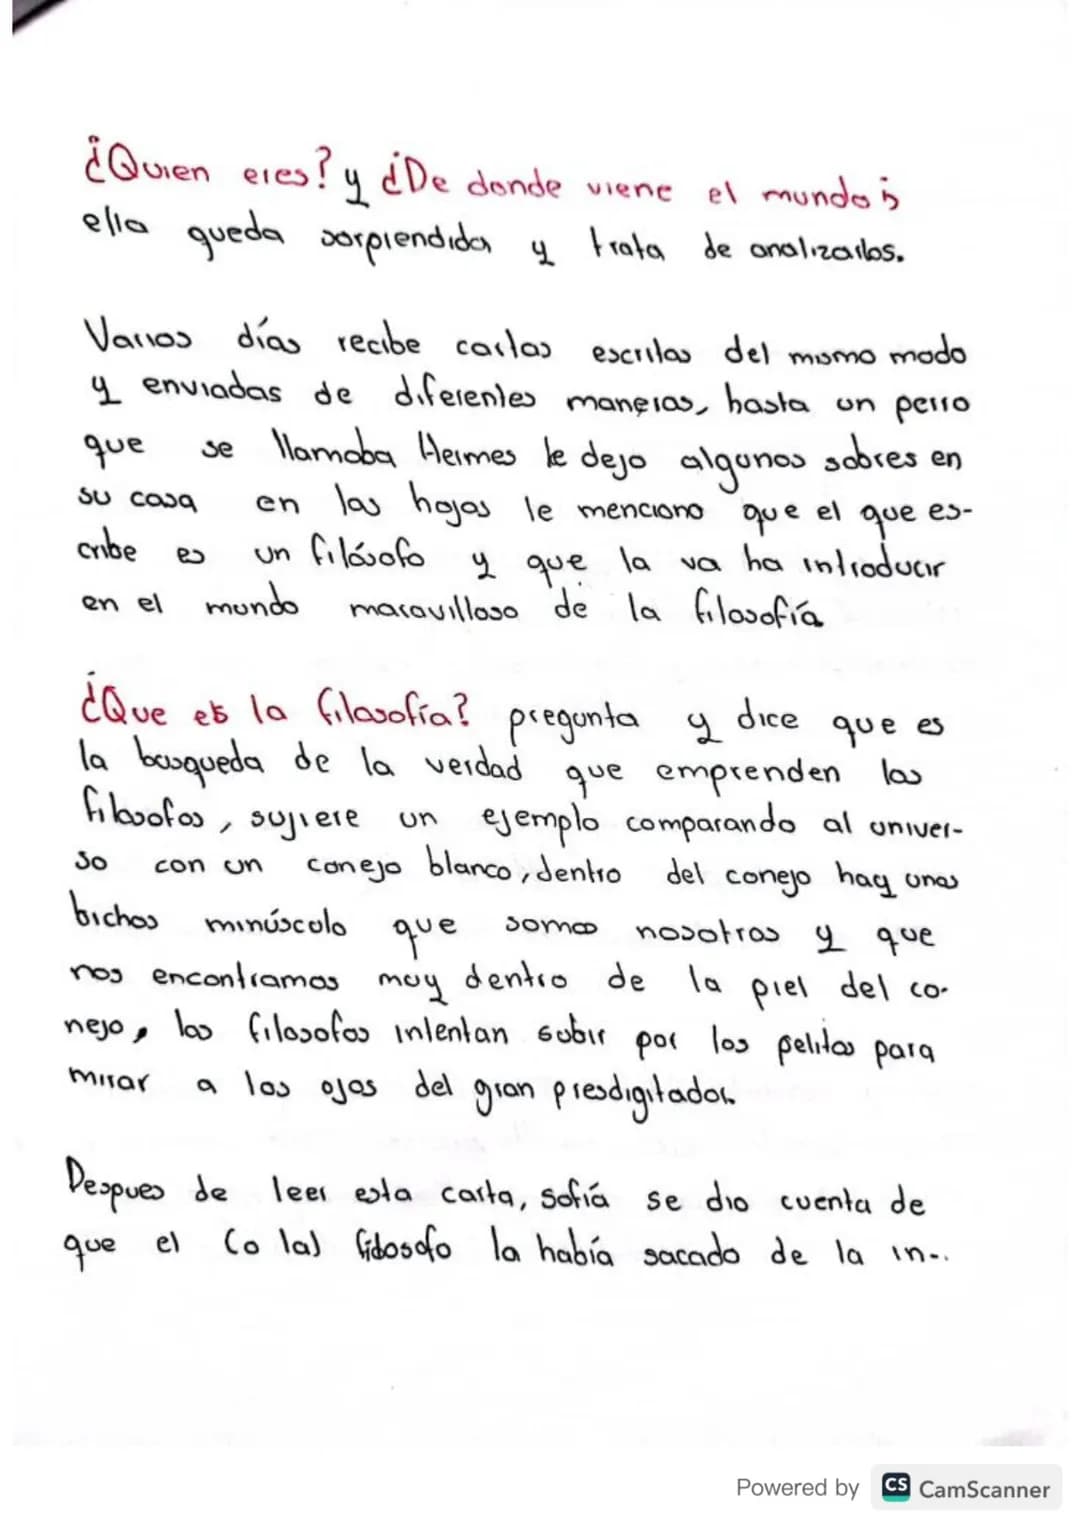 ¿Quien eres? y ¿De donde viene el mundo?
ella queda sorprendida y trata de analizarlos.
Varios días recibe cartas escritas del mismo modo
y enviadas de diferentes maneras, hasta un perro
que se llamaba Hermes le dejo algunos sobres en
su casa en las hojas le menciono que el que es-
cribe es un filósofo y que la va ha introducir
en el mundo maravilloso de la filosofía
¿Que es la filosofía? pregunta y dice que es
la busqueda de la verdad que emprenden los
filosofos, sujiere un ejemplo comparando al univer-
so con un conejo blanco, dentro del conejo hay unos
bichos minúsculo que somos nosotros y que
nos encontramos muy dentro de la piel del co-
nejo, los filosofos intentan subir por los pelitos para
mirar a los ojos del gran presdigitador.
Despues de leer esta carta, sofía se dio cuenta de
que el (o la) fidosofo la había sacado de la in-.
Powered by CS CamScanner